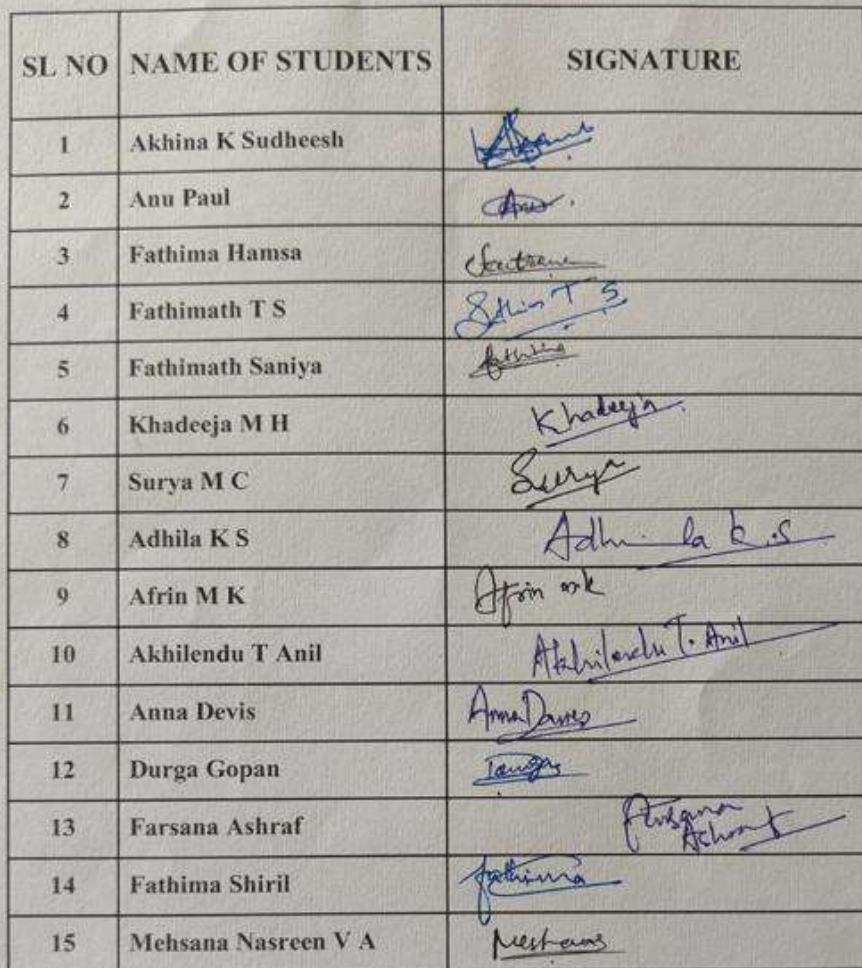 SL NO NAME OF STUDENTS SIGNATURE
1 Akhina K Sudheesh
2 Anu Paul Anu
3 Fathima Hamsa
4 Fathimath T S T S
5 Fathimath Saniya
6 Khadeeja M H Khadeeja
7 Surya M C Surya
8 Adhila K S Adhila k.s
9 Afrin M K Afrin mk
10 Akhilendu T Anil Akhilendu T. Anil
11 Anna Devis Anna
12 Durga Gopan
13 Farsana Ashraf Farsana
Ashraf
14 Fathima Shiril fathima
15 Mehsana Nasreen V A